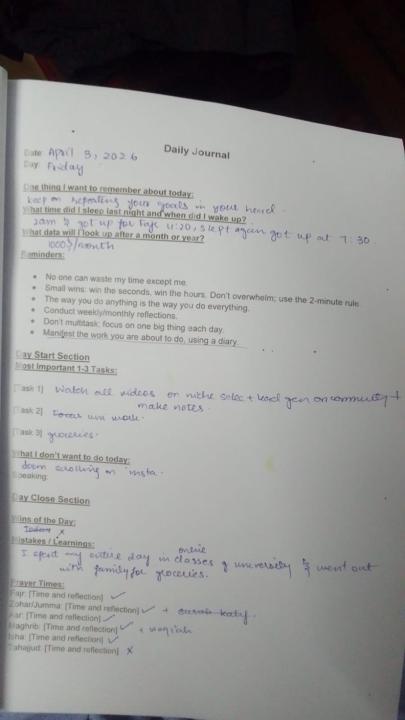 Daily Journal
Date: April 3, 2026
Day: Friday
One thing I want to remember about today:
keep on repeating your goals in your head.
What time did I sleep last night and when did I wake up?
2am & got up for Fajr 4:20, slept again got up at 7:30.
What data will I look up after a month or year?
1000$/month
Reminders:
• No one can waste my time except me.
• Small wins: win the seconds, win the hours. Don't overwhelm; use the 2-minute rule.
• The way you do anything is the way you do everything.
• Conduct weekly/monthly reflections.
• Don't multitask; focus on one big thing each day.
• Manifest the work you are about to do, using a diary.
Day Start Section
Most Important 1-3 Tasks:
[Task 1] Watch all videos on niche selec + lead gen on community +
make notes.
[Task 2] work.
[Task 3] groceries.
What I don't want to do today:
doom scrolling on insta.
Speaking:
Day Close Section
Wins of the Day:
x
Mistakes / Learnings:
I spent my entire day in online classes of university & went out
with family for groceries.
Prayer Times:
Fajr: [Time and reflection] ✓
Zohar/Jumma: [Time and reflection] ✓ +
Asr: [Time and reflection] ✓
Maghrib: [Time and reflection] ✓ + waqiah
Isha: [Time and reflection] ✓
Tahajjud: [Time and reflection] x